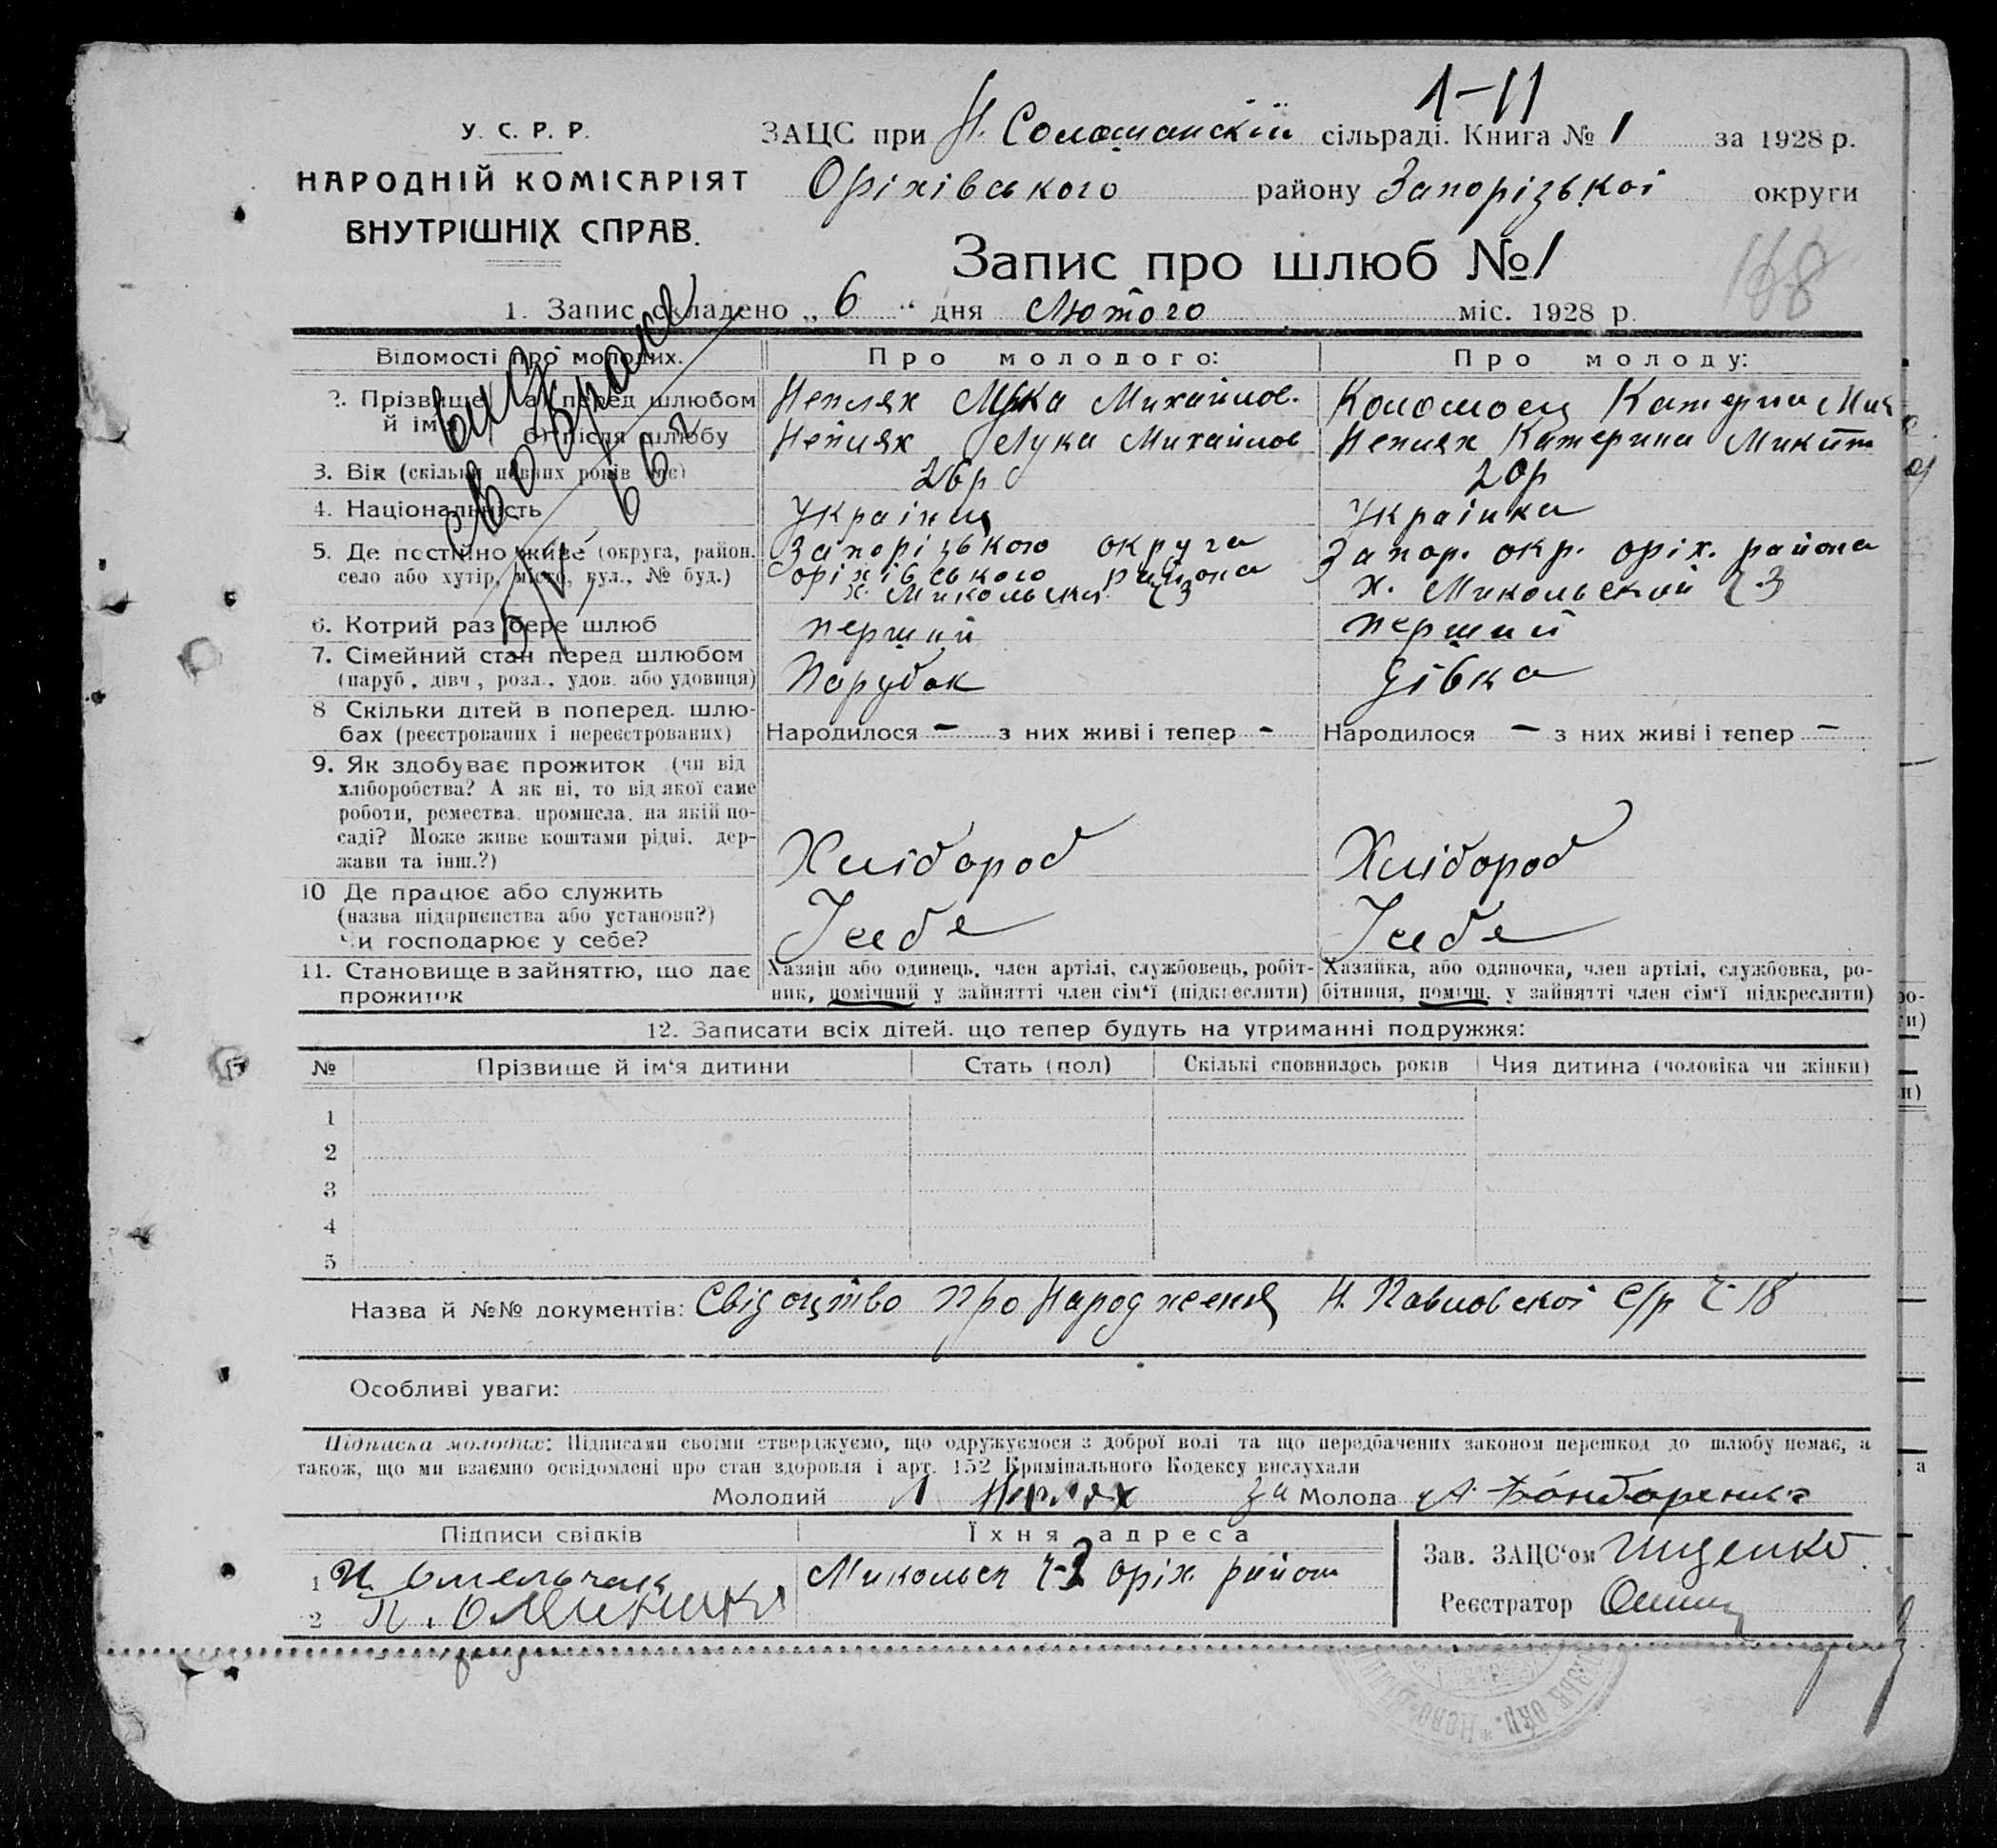 1-11
У. С. Р. Р.
НАРОДНІЙ КОМІСАРІЯТ
ВНУТРІШНІХ СПРАВ.
ЗАЦС при Н. сільраді. Книга № 1 за 1928 р.
Оріхівського району Запорізької округи
Запис про шлюб № 1
168
1. Запис складено „ 6 “ дня Лютого міс. 1928 р.
Відомості про молодих. Про молодого: Про молоду:
2. Прізвище й ім а) перед шлюбом Неплях Лука Михайлов. Коломоец Катерина Мик
б) після шлюбу Неплях Лука Михайлов Неплях Катерина Микит
3. Вік (скільки повних років має) 26р 20р
4. Національність Украінец Украінка
5. Де постійно живе (округа, район, Запорізького округа Запор. окр. оріх. района
село або хутір, місто, вул., № буд.) оріхівського района х. Микольський ч. 3
х. Микольськ. ч 3
6. Котрий раз бере шлюб перший перший
7. Сімейний стан перед шлюбом
(паруб., дівч., розл., удов. або удовиця) Парубок дівка
8 Скільки дітей в поперед. шлю-
бах (реєстрованих і нереєстрованих) Народилося - з них живі і тепер - Народилося - з них живі і тепер -
9. Як здобуває прожиток (чи від
хліборобства? А як ні, то від якої саме
роботи, ремества, промисла, на якій по-
саді? Може живе коштами рідні, дер-
жави та інш.?) Хлібороб Хлібороб
10 Де працює або служить
(назва підприємства або установи?)
Чи господарює у себе? У себе У себе
11. Становище в зайняттю, що дає
прожиток
Хазяїн або одинець, член артілі, службовець, робіт-
ник, помічний у зайнятті член сім‘ї (підкреслити)
Хазяйка, або одиночка, член артілі, службовка, ро-
бітниця, помічн. у зайнятті член сім‘ї підкреслити)
12. Записати всіх дітей. що тепер будуть на утриманні подружжя:
№ Прізвище й ім‘я дитини Стать (пол) Скількі сповнилось років Чия дитина (чоловіка чи жінки)
1
2
3
4
5
Назва й №№ документів: Свідоцтво про народження Н. Павловскої с/р ч 18
Особливі уваги:
Підписка молодих: Підписами своїми стверджуємо, що одружуємося з доброї волі та що передбачених законом перешкод до шлюбу немає, а
також, що ми взаємно освідомлені про стан здоровля і арт. 152 Кримінального Кодексу вислухали
Молодий Л Неплях за Молода А. Бондаренко
Підписи свідків Їхня адреса
1 И. Омельчак Микольск ч-3 оріх. район
2 П.
Зав. ЗАЦС‘ом Ищенко
Реєстратор